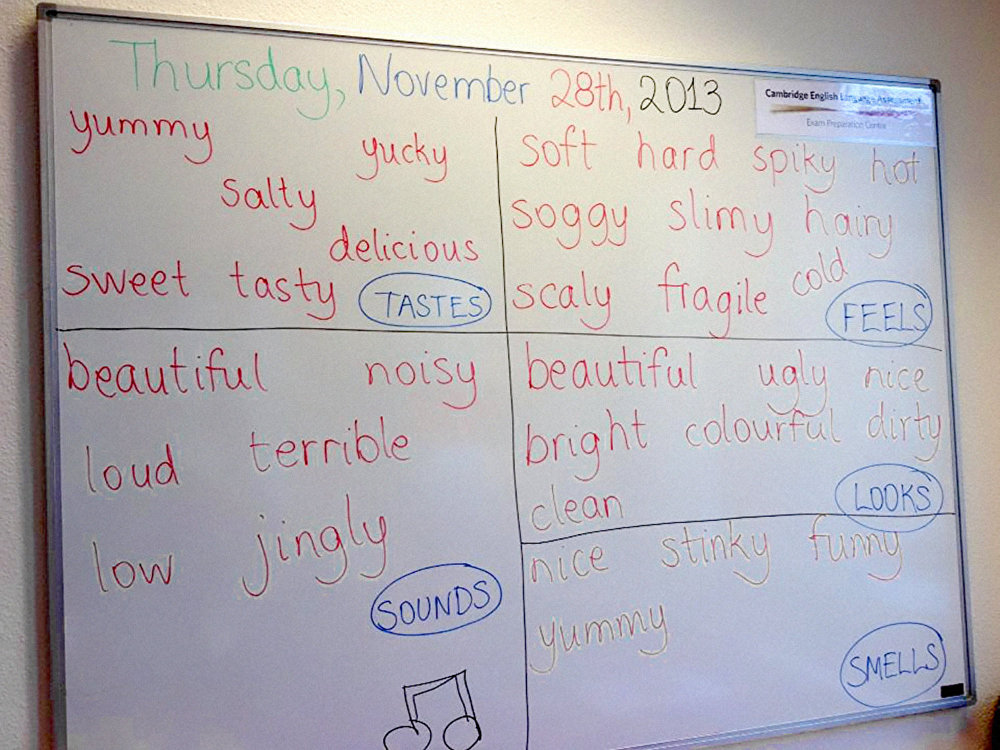 Thursday, November 28th, 2013
Cambridge English Language Assessment
Exam Preparation Centre
yummy yucky
salty
delicious
sweet tasty TASTES
soft hard spiky hot
soggy slimy hairy
scaly fragile cold
FEELS
beautiful noisy
loud terrible
low jingly
SOUNDS
beautiful ugly nice
bright colourful dirty
clean LOOKS
nice stinky funny
yummy
SMELLS